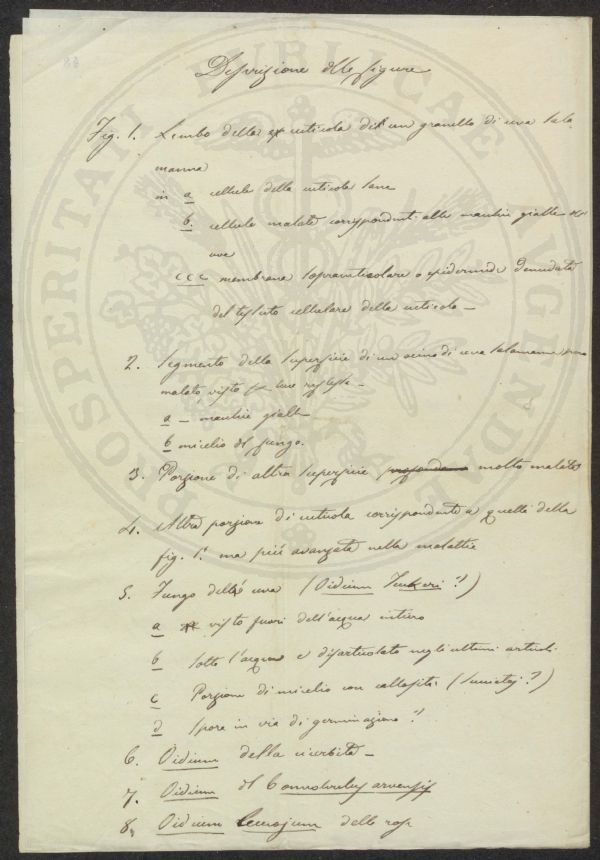 Descrizione delle figure
Fig. 1. Lembo della cuticola di un granello di uva sala
manna
in a cellule della cuticola sane
b. cellule malate corrispondenti alle macchie gialle
uve
c c c membrana sopracuticolare o epidermide denudata
del tessuto cellulare della cuticola –
2. Segmento della superficie di un acino di uva salamanna
malato, visto luce riflessa –
a – macchie gialle
b micelio del fungo.
3. Porzione di altra superficie molto malata
4. Altra porzione di cuticola corrispondente a quella della
fig. 1ª ma più avanzata nella malattia
5. Fungo dell' uva (Oidium Tuckeri ?)
a visto fuori dell'acqua intiero
b sotto l'acqua e disarticolato negli ultimi articoli
c Porzione di micelio con ?)
d spora in via di germinazione ?
6. Oidium della cucurbita –
7. Oidium del Convolvulus arvensis
8. Oidium delle rose
PROSPERITATI PUBLICAE AUGENDAE